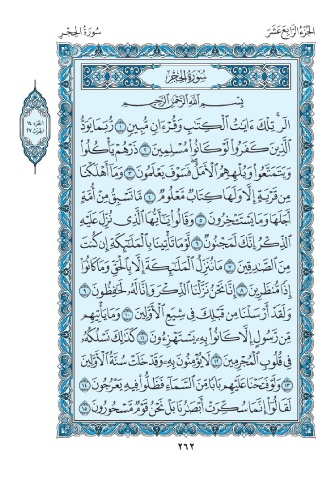 الجزء الرابع عشر
سورة الحجر
الجزء ١٤
الحزب ٢٧
سورة الحجر
بسم الله الرحمن الرحيم
الٓر ۚ تِلْكَ ءَايَٰتُ ٱلْكِتَٰبِ وَقُرْءَانٍ مُّبِينٍ ١ رُّبَمَا يَوَدُّ
ٱلَّذِينَ كَفَرُوا۟ لَوْ كَانُوا۟ مُسْلِمِينَ ٢ ذَرْهُمْ يَأْكُلُوا۟
وَيَتَمَتَّعُوا۟ وَيُلْهِهِمُ ٱلْأَمَلُ ۖ فَسَوْفَ يَعْلَمُونَ ٣ وَمَآ أَهْلَكْنَا
مِن قَرْيَةٍ إِلَّا وَلَهَا كِتَابٌ مَّعْلُومٌ ٤ مَّا تَسْبِقُ مِنْ أُمَّةٍ
أَجَلَهَا وَمَا يَسْتَـْٔخِرُونَ ٥ وَقَالُوا۟ يَٰٓأَيُّهَا ٱلَّذِى نُزِّلَ عَلَيْهِ
ٱلذِّكْرُ إِنَّكَ لَمَجْنُونٌ ٦ لَّوْ مَا تَأْتِينَا بِٱلْمَلَٰٓئِكَةِ إِن كُنتَ
مِنَ ٱلصَّٰدِقِينَ ٧ مَا نُنَزِّلُ ٱلْمَلَٰٓئِكَةَ إِلَّا بِٱلْحَقِّ وَمَا كَانُوٓا۟
إِذًا مُّنظَرِينَ ٨ إِنَّا نَحْنُ نَزَّلْنَا ٱلذِّكْرَ وَإِنَّا لَهُۥ لَحَٰفِظُونَ ٩
وَلَقَدْ أَرْسَلْنَا مِن قَبْلِكَ فِى شِيَعِ ٱلْأَوَّلِينَ ١٠ وَمَا يَأْتِيهِم
مِّن رَّسُولٍ إِلَّا كَانُوا۟ بِهِۦ يَسْتَهْزِءُونَ ١١ كَذَٰلِكَ نَسْلُكُهُۥ
فِى قُلُوبِ ٱلْمُجْرِمِينَ ١٢ لَا يُؤْمِنُونَ بِهِۦ ۖ وَقَدْ خَلَتْ سُنَّةُ ٱلْأَوَّلِينَ
١٣ وَلَوْ فَتَحْنَا عَلَيْهِم بَابًا مِّنَ ٱلسَّمَآءِ فَظَلُّوا۟ فِيهِ يَعْرُجُونَ ١٤
لَقَالُوٓا۟ إِنَّمَا سُكِّرَتْ أَبْصَٰرُنَا بَلْ نَحْنُ قَوْمٌ مَّسْحُورُونَ ١٥
٢٦٢